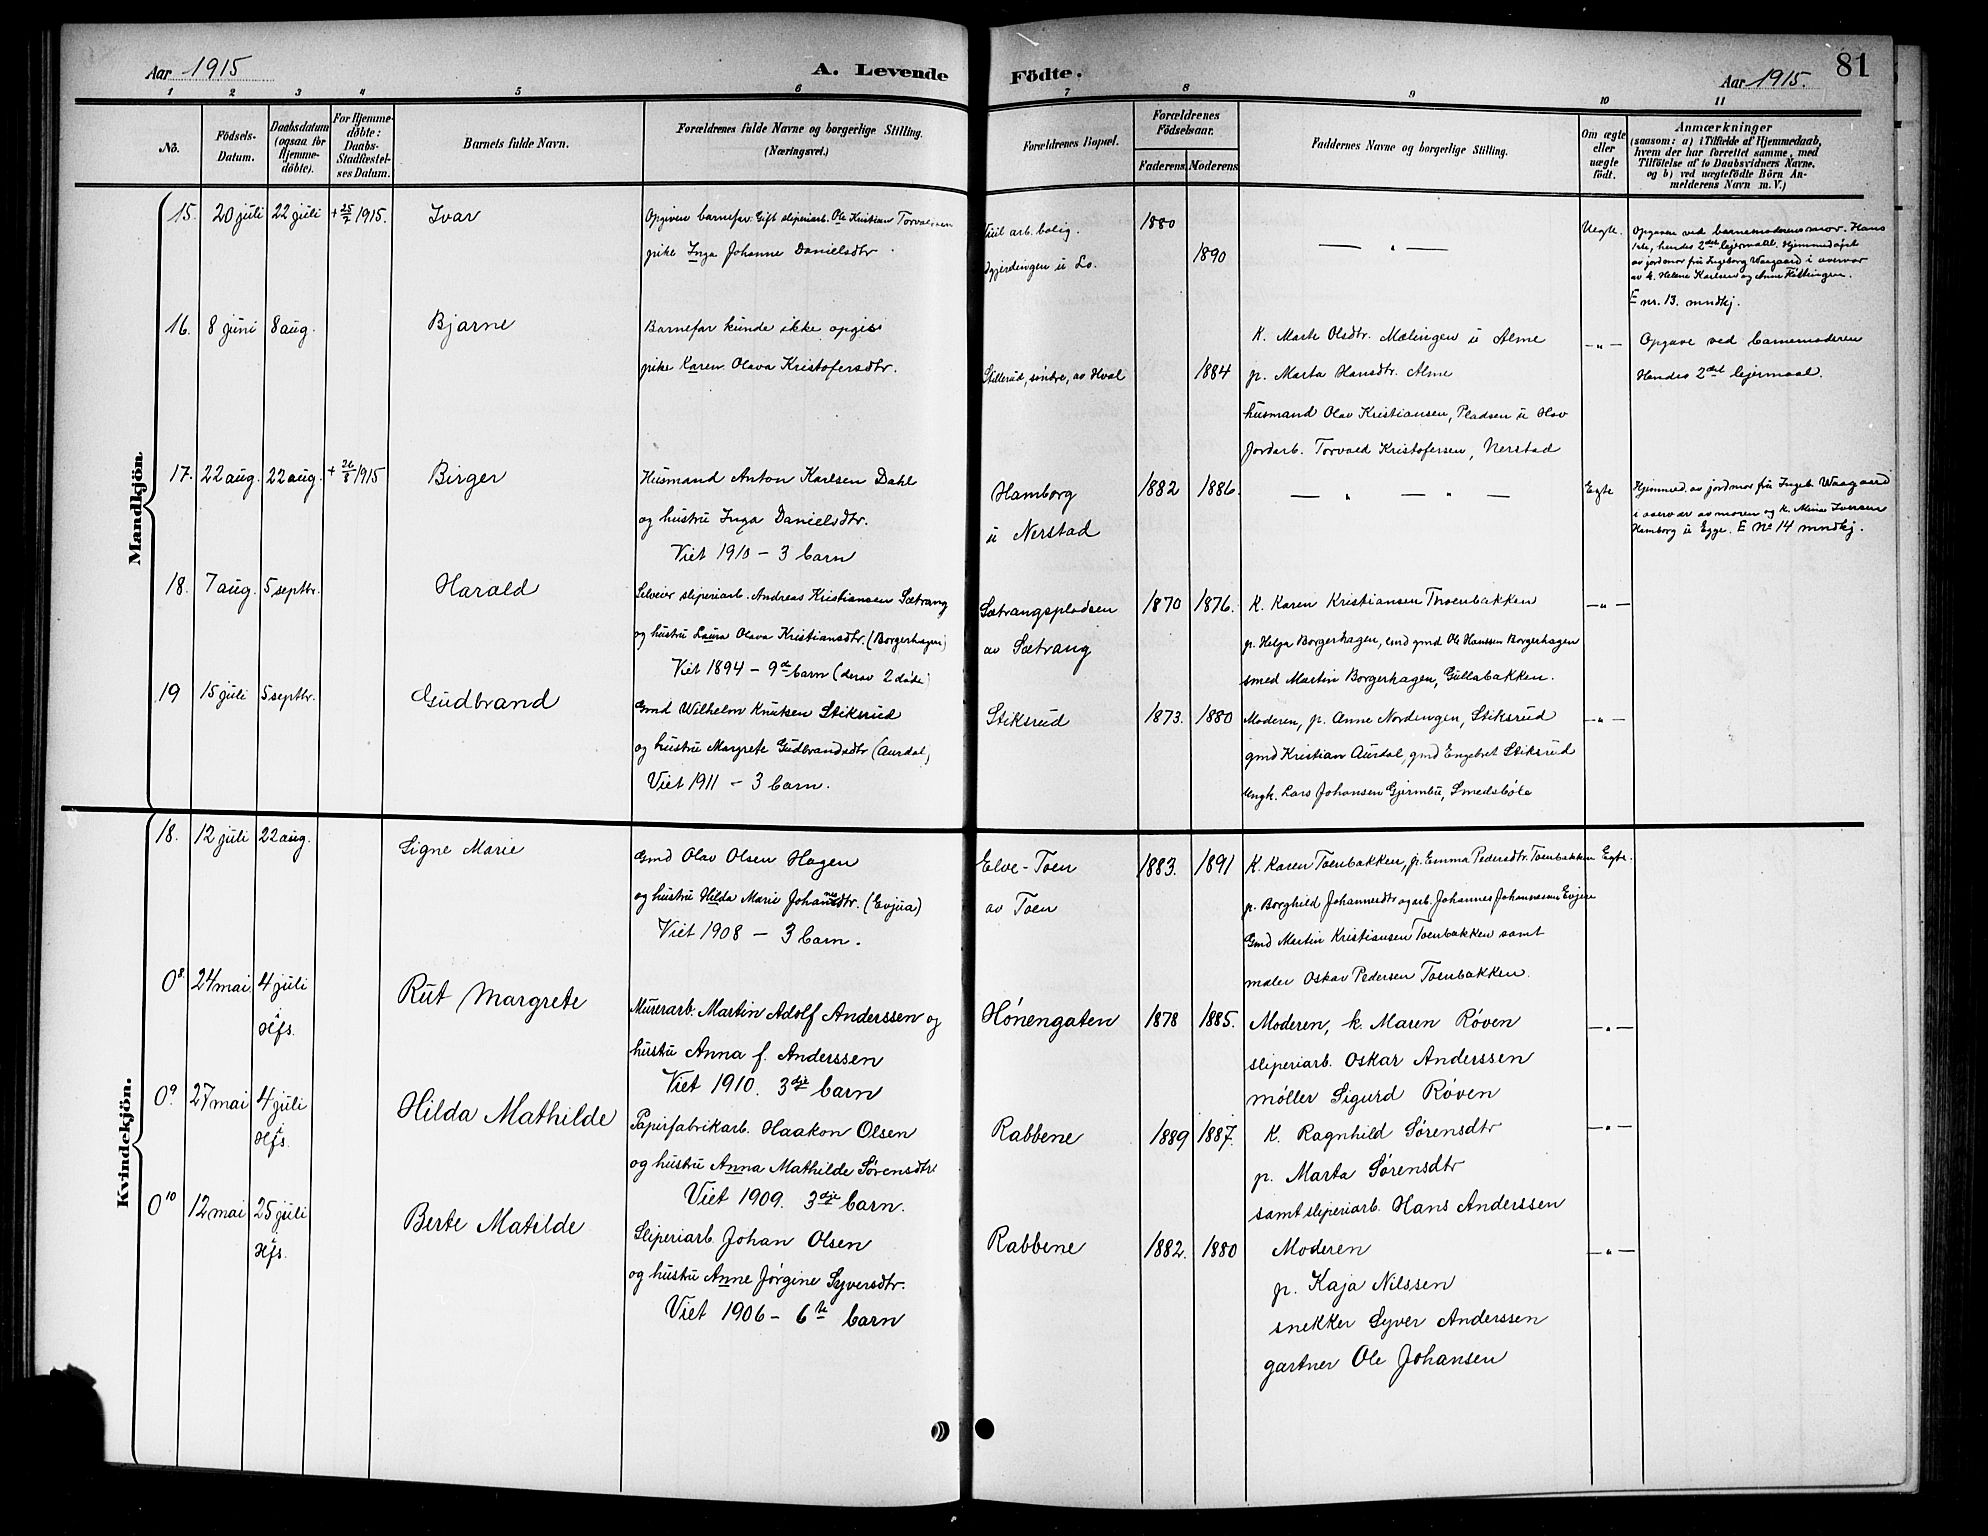 Aar 1915
A. Levende
1 2 3 4 5 6
No.
Födsels-
Datum.
Daabsdatum
(ogsaa for
Hjemme-
döbte).
For Hjemme-
döbte:
Daabs-
Stadfæstel-
ses Datum.
Barnets fulde Navn.
Forældrenes fulde Navne og borgerlige Stilling.
(Næringsvei.)
Mandkjön.
15. 20 juli 22 juli + 25/7 1915. Ivar
Opgiven barnefar: Gift sliperiarb. Ole Kristian Torvaldsen
pike Inga Johanne Danielsdtr.
16. 8 juni 8 aug. Bjarne
Barnefar kunde ikke opgis
pike Karen Olava Kristofersdtr.
17. 22 aug. 22 aug. + 26/8 1915 Birger
Husmand Anton Karlsen Dahl
og hustru Inga Danielsdtr.
Viet 1910 – 3 barn
18. 7 aug. 5 septbr. Harald
Selveier sliperiarb. Andreas Kristiansen Sætrang
og hustru Laura Olava Kristiansdtr. (Borgerhagen)
Viet 1894 – 9de barn (derav 2 døde)
19 15 juli 5 septbr. Gudbrand
Gmd Wilhelm Knutsen Stiksrud
og hustru Margrete Gudbrandsdtr (Aurdal)
Viet 1911 – 3 barn.
Kvindekjön.
18. 12 juli 22 aug. Signe Marie
Gmd Olav Olsen Hagen
og hustru Hilda Marie Johannesdtr. (Evjua)
Viet 1908 – 3 barn.
0 8. 24 mai 4 juli Rut Margrete
Hfs.
Murerarb. Martin Adolf Anderssen og
hustru Anna f. Anderssen
Viet 1910. 3dje barn
0 9. 27 mai 4 juli Hilda Mathilde
Hfs.
Papirfabrikarb. Haakon Olsen
og hustru Anna Mathilde Sørensdtr
Viet 1909. 3dje barn.
0 10 12 mai 25 juli Berte Matilde
Hfs.
Sliperiarb. Johan Olsen
og hustru Anne Jørgine Syversdtr.
Viet 1906 – 6te barn
Födte.
Aar 1915.
81
7 8 9 10 11
Forældrenes Bopæl.
Forældrenes
Födselsaar.
Faderens. Moderens.
Faddernes Navne og borgerlige Stilling.
Om ægte
eller
uægte
födt.
Anmærkninger
(saasom: a) i Tilfælde af Hjemmedaab,
hvem der har forrettet samme, med
Tilföielse af to Daabsvidners Navne,
og b) ved uægtefödte Börn An-
melderens Navn m. V.)
arb. bolig. 1880 Uegte.
u Lo. 1890 — „ —
Opgaven ved barnemoderens mor. Hans
hendes 2det lejermaal. Hjemmedøpt
av jordmor fru Ingeborg Waagaard i overvær
av k. Helene Karlsen og Anne
E nr. 13. mndkj.
Stillerud, søndre, av Hval 1884
K. Marte Olsdtr. Mælingen u Alme
p. Marta Hansdtr. Alme
husmand Olav Kristiansen, Pladsen u Hov
Jordarb. Torvald Kristofersen, Nerstad
— „ —
Opgave ved barnemoderen
Hendes 2det lejermaal.
Hamborg 1882 1886.
u Nerstad
— „ — „ — Egte
Hjemmed. av jordmor fru Ingeb. Waagaard
i overvær av moren og k. Mina Iversen
Hamborg u Egge. E No 14 mndkj.
Sætrangspladsen 1870 1876.
av Sætrang
K. Karen Kristiansen Thoenbakken
p. Helga Borgerhagen, gmd Ole Hanssen Borgerhagen
smed Martin Borgerhagen, Gullabakken.
— „ —
Stiksrud 1873. 1880
Moderen, p. Anne Nordengen, Stiksrud
gmd Kristian Aurdal, gmd Engebret Stiksrud
Ungk. Lars Johansen Gjermbu, Smedsbøle
— „ —
Elve-Toen 1883. 1891
av Toen
K. Karen Toenbakken, p. Emma Pedersdtr. Toenbakken Egte.
p. Borghild Johannesdtr og arb. Johannes Johannessen Evjen
Gmd Martin Kristiansen Toenbakken samt
maler Oskar Pedersen Toenbakken.
Hónengaten 1878 1885.
Moderen, k. Maren Røven
sliperiarb. Oskar Anderssen
møller Sigurd Røven
— „ —
Rabbene 1889 1887.
K. Ragnhild Sørensdtr
p. Marta Sørensdtr
samt sliperiarb. Hans Anderssen
— „ —
Rabbene 1882. 1880
Moderen
p. Kaja Nilssen
snekker Syver Anderssen
gartner Ole Johansen
— „ —